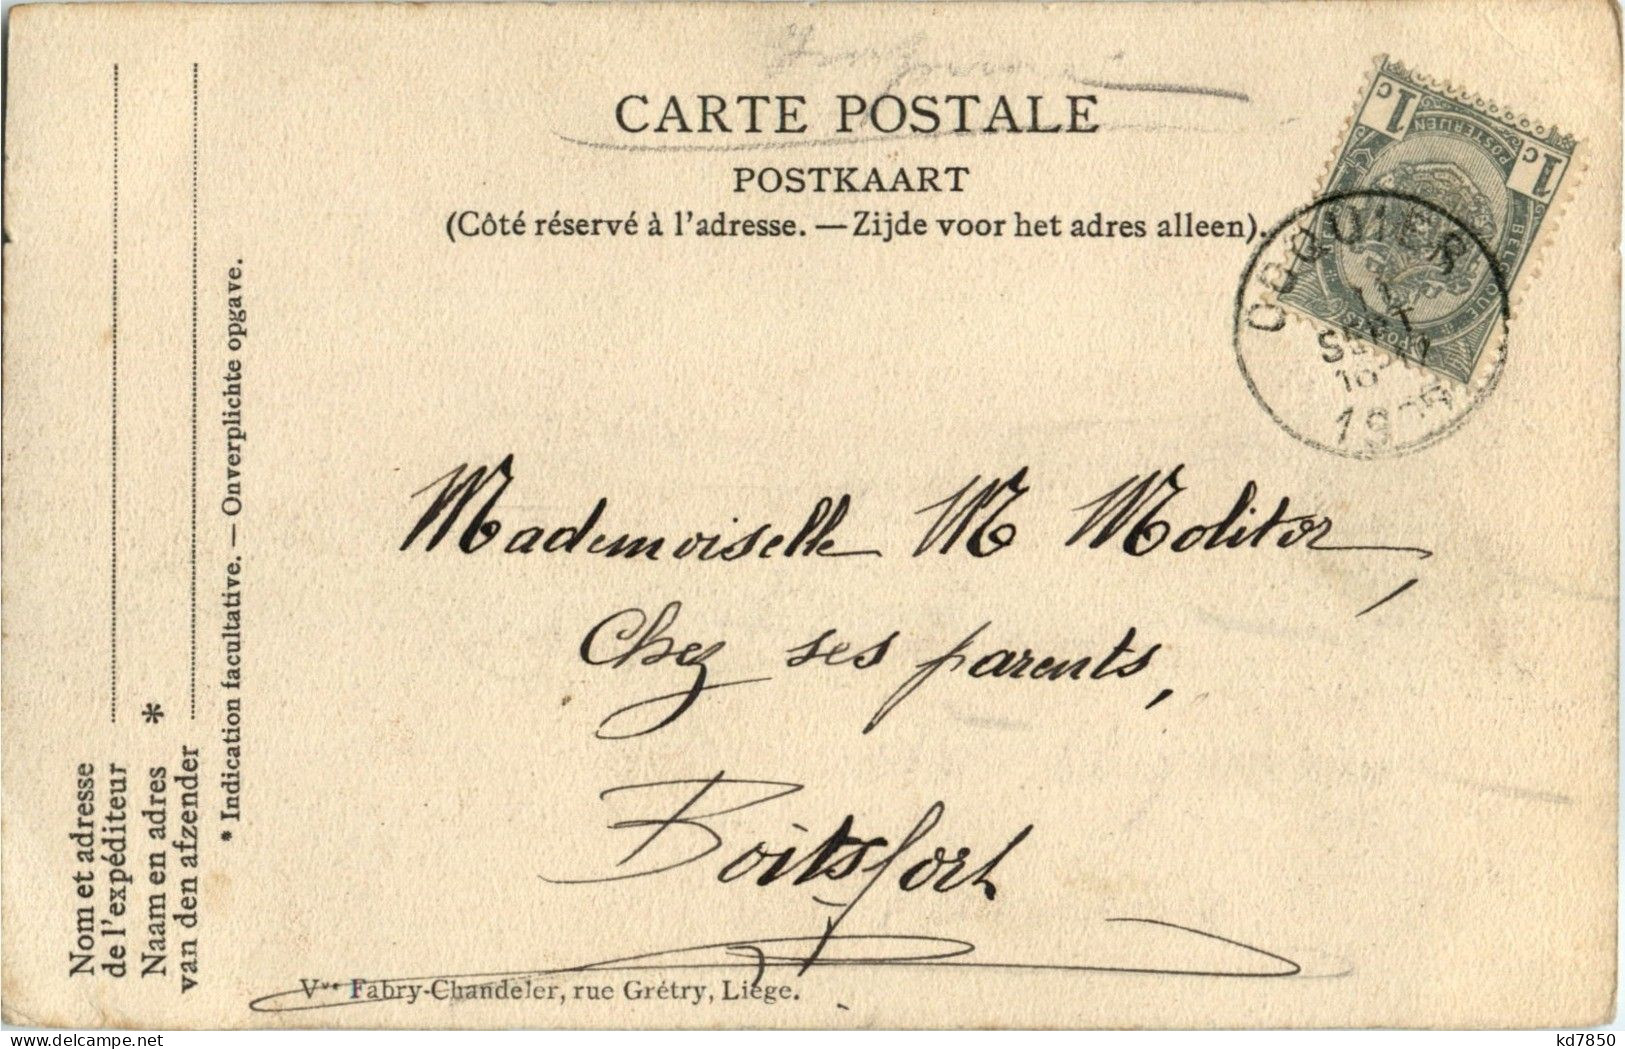 CARTE POSTALE
POSTKAART
(Côté réservé à l'adresse. — Zijde voor het adres alleen).
1c
1c
POSTERIJEN
BELGIQUE
OCQUIER
SEPT
Mademoiselle M Molitor,
Chez ses parents,
Boitsfort
Vve Fabry-Chandeler, rue Grétry, Liége.
Nom et adresse
de l'expéditeur
Naam en adres *
van den afzender
* Indication facultative. — Onverplichte opgave.
delcampe.net
kd7850